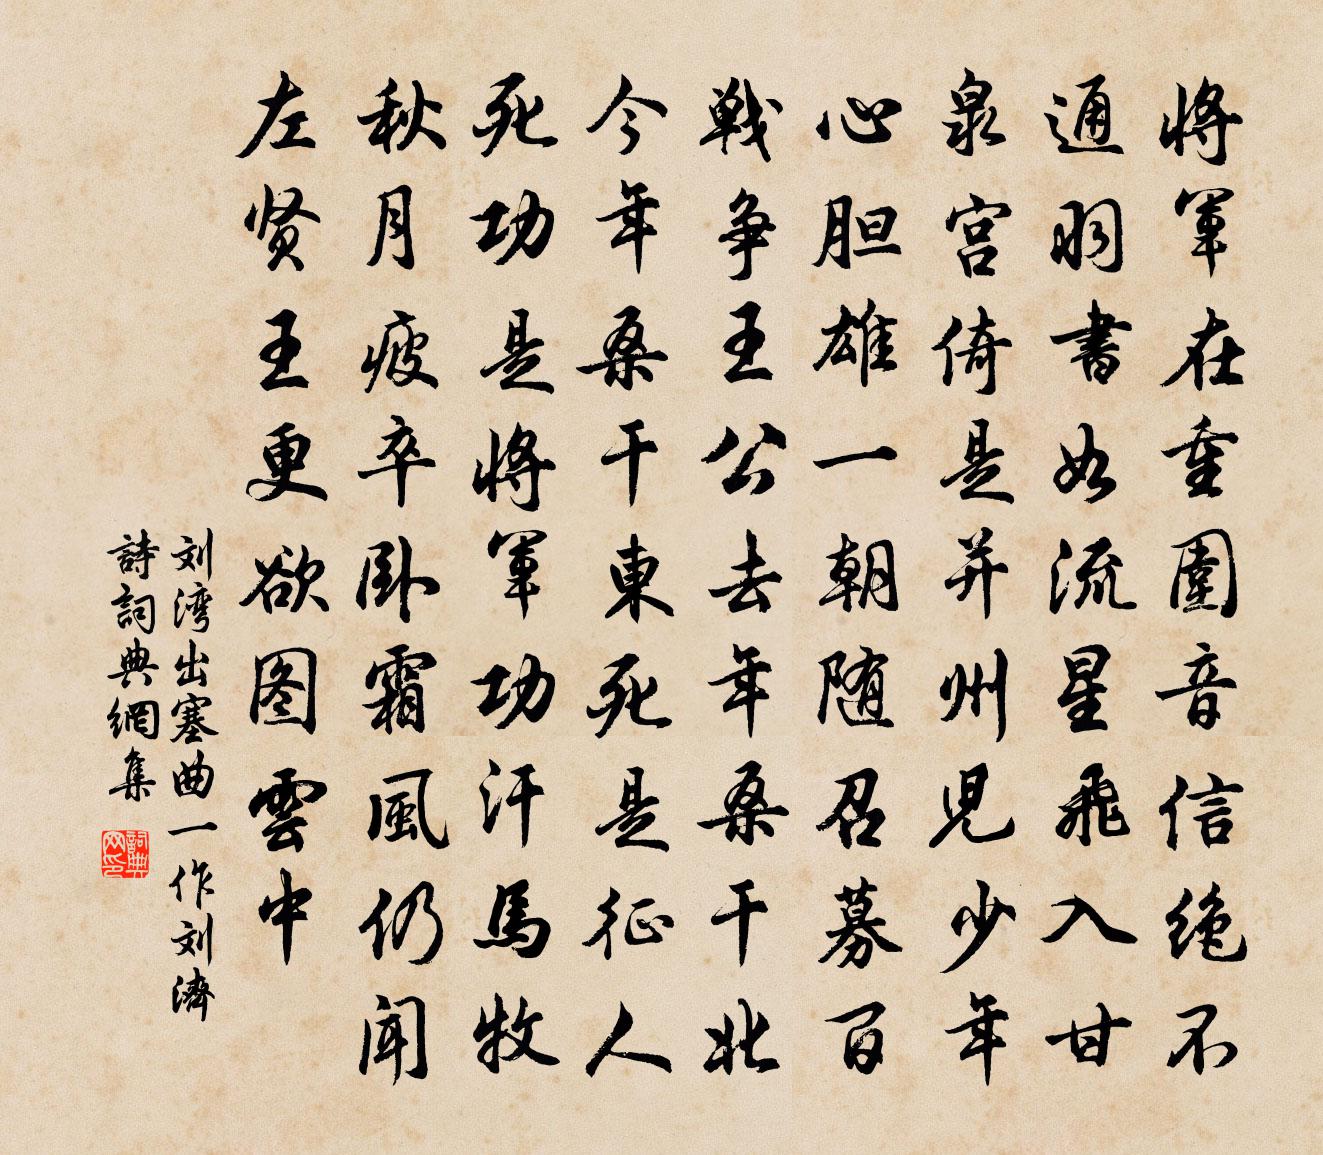 将軍在重圍音信绝不
通羽書如流星飛入甘
泉宫倚是并州児少年
心胆雄一朝随召募百
戦争王公去年桑干北
今年桑干東死是征人
死功是将軍功汗馬牧
秋月疲卒卧霜風仍闻
左贤王更欲图雲中
刘湾出塞曲一作刘濟
詩詞典網集
詞典網印